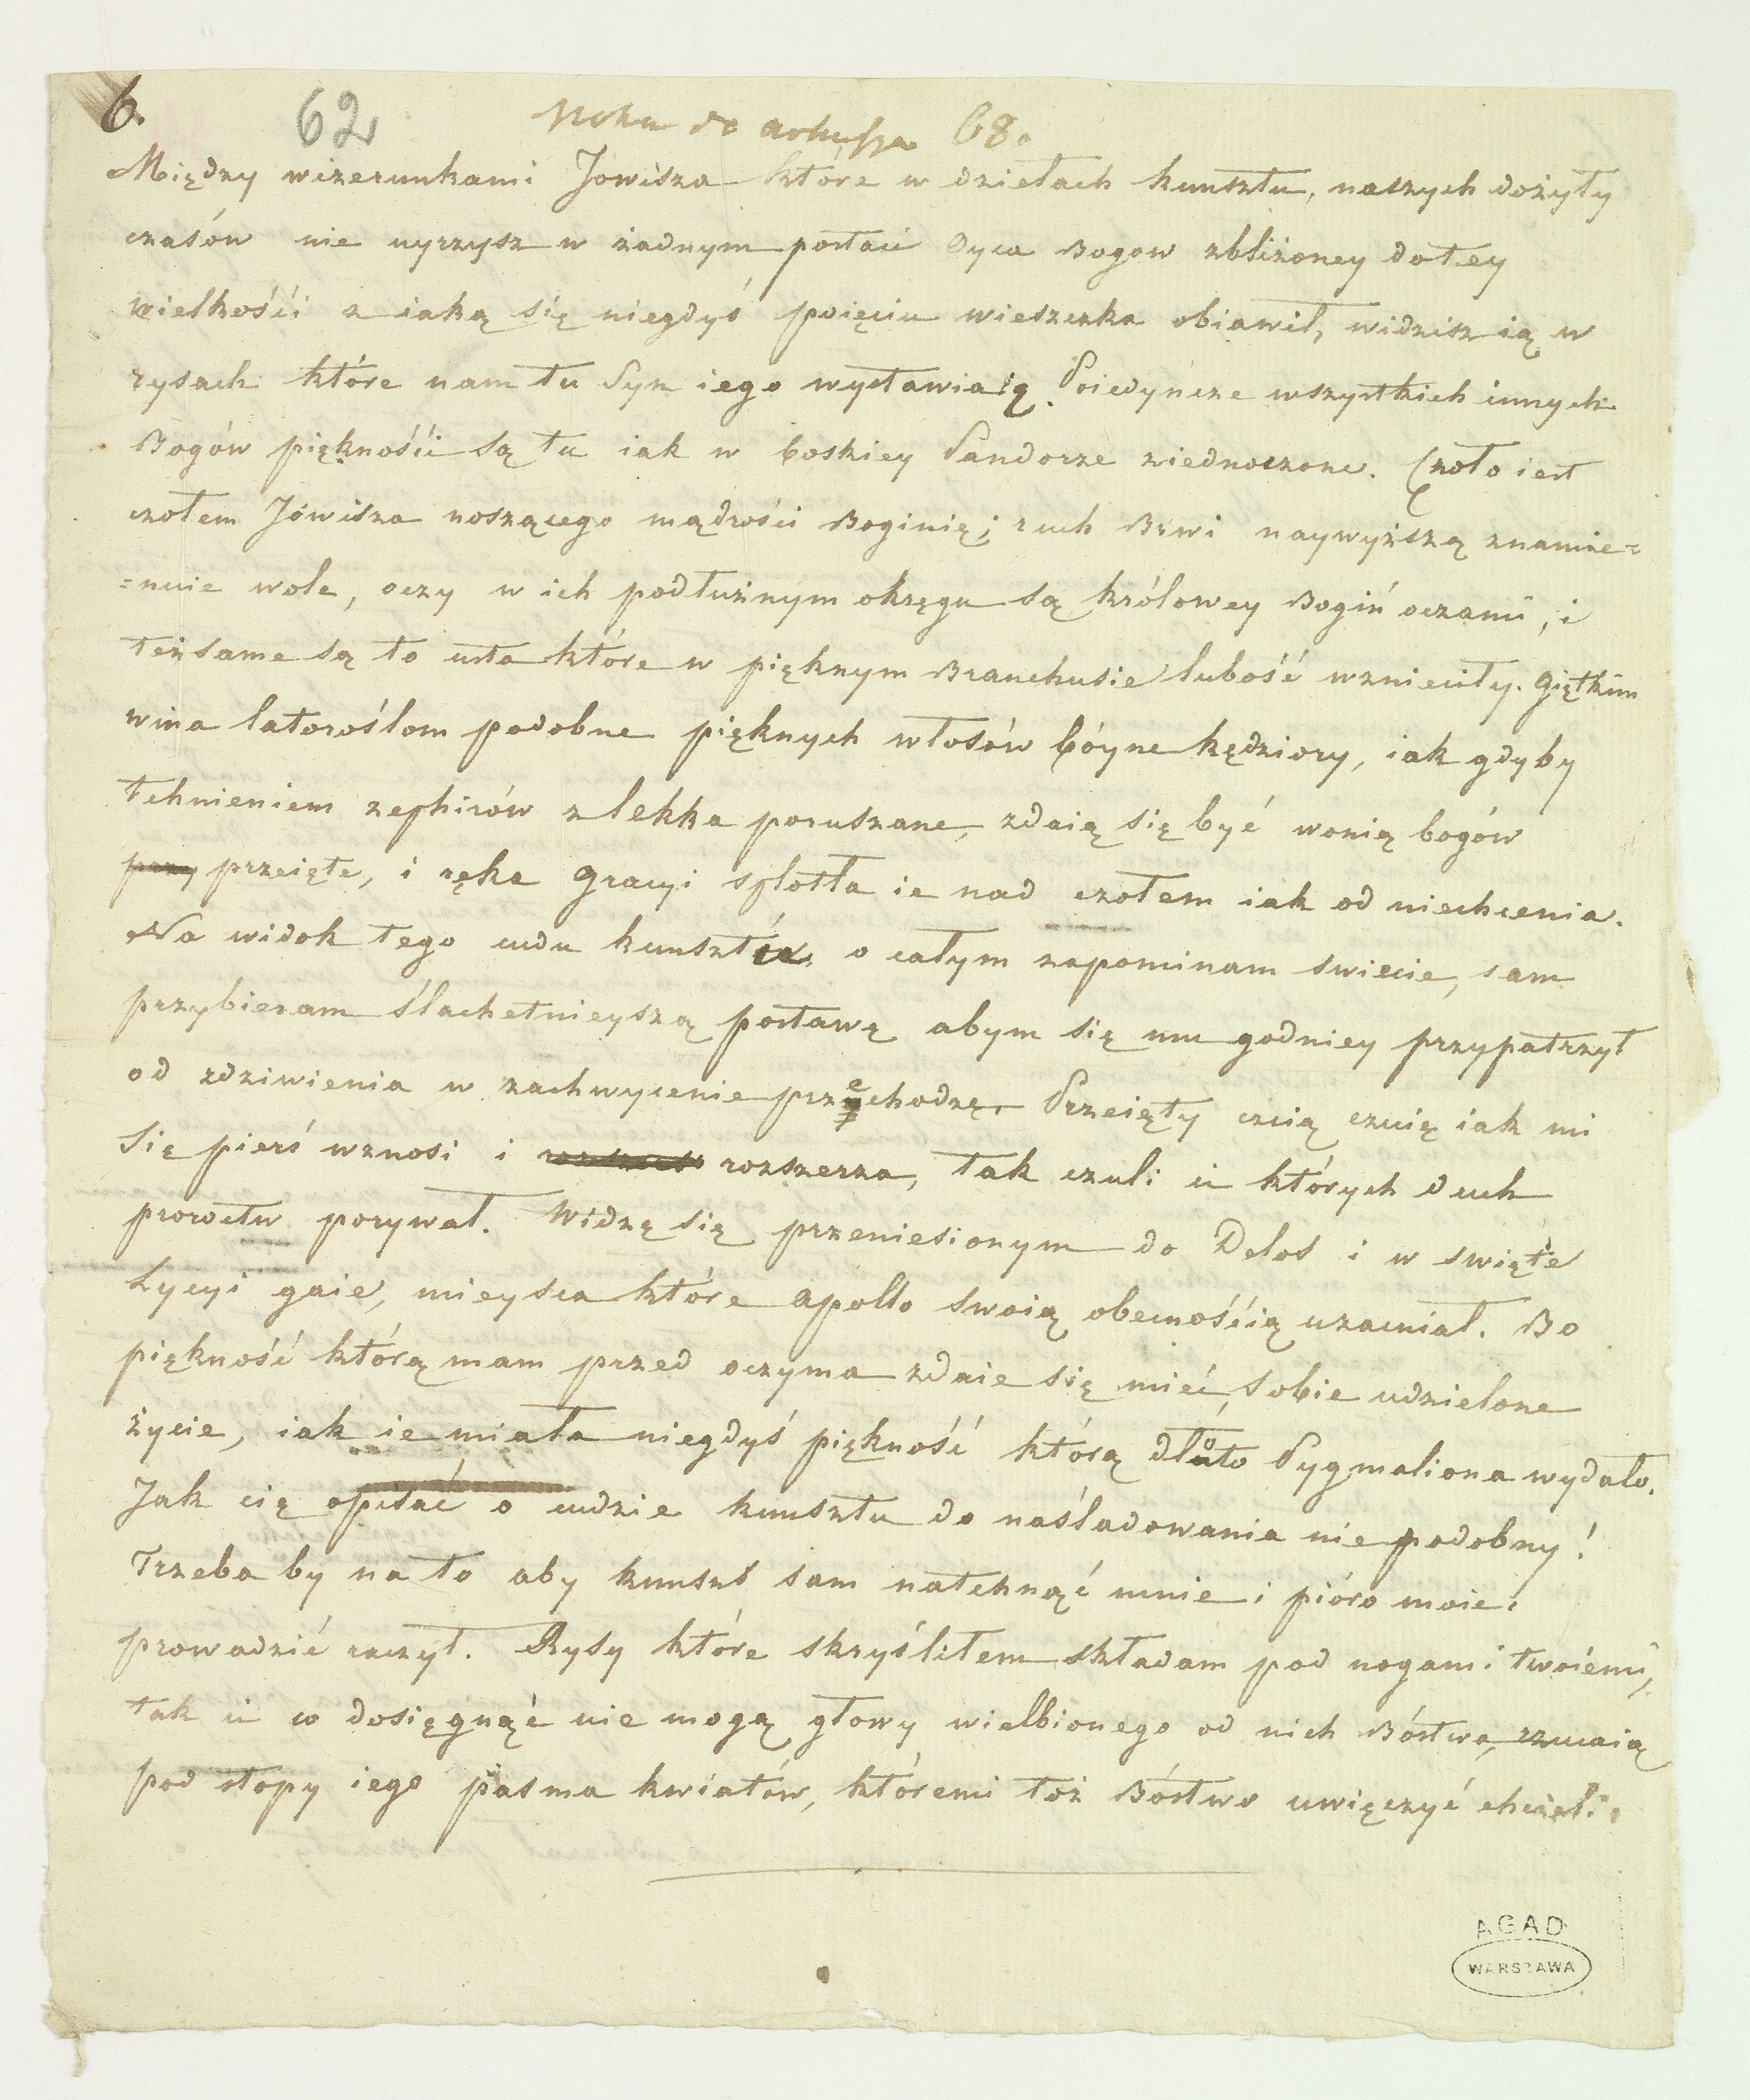 6.
62
Nota do arkusza 68.
Między wizerunkami Jowisza które w dziełach kunsztu, naszych dożyły
czasów nie uyrzysz w żadnym postaci Oyca Bogow zbliżoney do tey
wielkośći z iaką się niegdyś poięciu wieszczka obiawił, widzisz ią w
rysach które nam tu Syn iego wystawia. Poiedyńcze wszystkich innych
Bogów pięknośći są tu iak w boskiey Pandorze ziednoczone. Czoło iest
czołem Jowisza noszącego mądrości Boginię; ruch Brwi naywyższą znamie=
=nuie wole, oczy w ich podłużnym okręgu są królowey Bogiń oczami, i
też same są to usta które w pięknym Branchusie lubość wznieciły. giętkim
wina latoroślom podobne pięknych włosów bóyne kędziory, iak gdyby
tchnieniem zephirów z lekka poruszane, zdaią się być wonią bogów
przy przeięte, i ręka gracyi splotła ie nad czołem iak od niechcenia.
Na widok tego cudu kunsztu o całym zapominam swiecie, sam
przybieram ślachetnieyszą postawę abym się mu godniey przypatrzył
od zdziwienia w zachwycenie przechodzę. Przeięty czcią czuię iak mi
się pierś wznosi i rozszerza, tak czuli ci których duch
proroctw porywał. Widzę się przeniesionym do Delos i w święte
Lycyi gaie, mieysca które apollo swoią obecnośćią uzacniał. Bo
piękność którą mam przed oczyma zdaie się mieć sobie udzielone
życie, iak ie miała niegdyś piękność którą dłóto Pygmaliona wydało.
Jak cię opisać o cudzie kunsztu do naśladowania nie podobny!
Trzeba by na to aby kunszt sam natchnąć mnie i pióro moie
prowadzić raczył. Rysy które skryśliłem składam pod nogami twoiemi,
tak ci co dosięgnąć nie mogą głowy wielbionego od nich Bóstwa, rzucaią
pod stopy iego pasma kwiatów, któremi toż Bóstwo uwięczyć chcieli.
AGAD
WARSZAWA